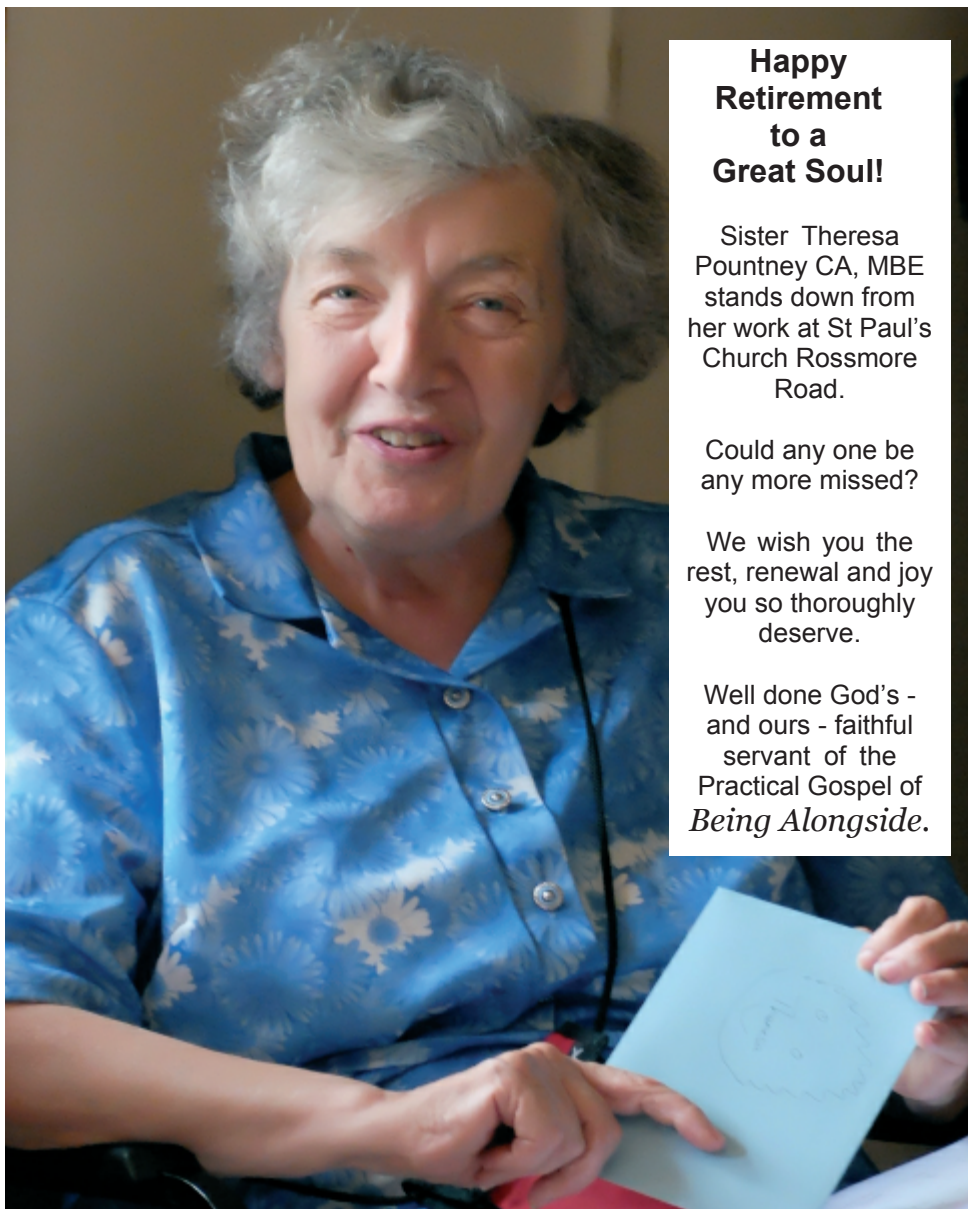 Happy
Retirement
to a
Great Soul!
Sister Theresa
Pountney CA, MBE
stands down from
her work at St Paul's
Church Rossmore
Road.
Could any one be
any more missed?
We wish you the
rest, renewal and joy
you so thoroughly
deserve.
Well done God's -
and ours - faithful
servant of the
Practical Gospel of
Being Alongside.